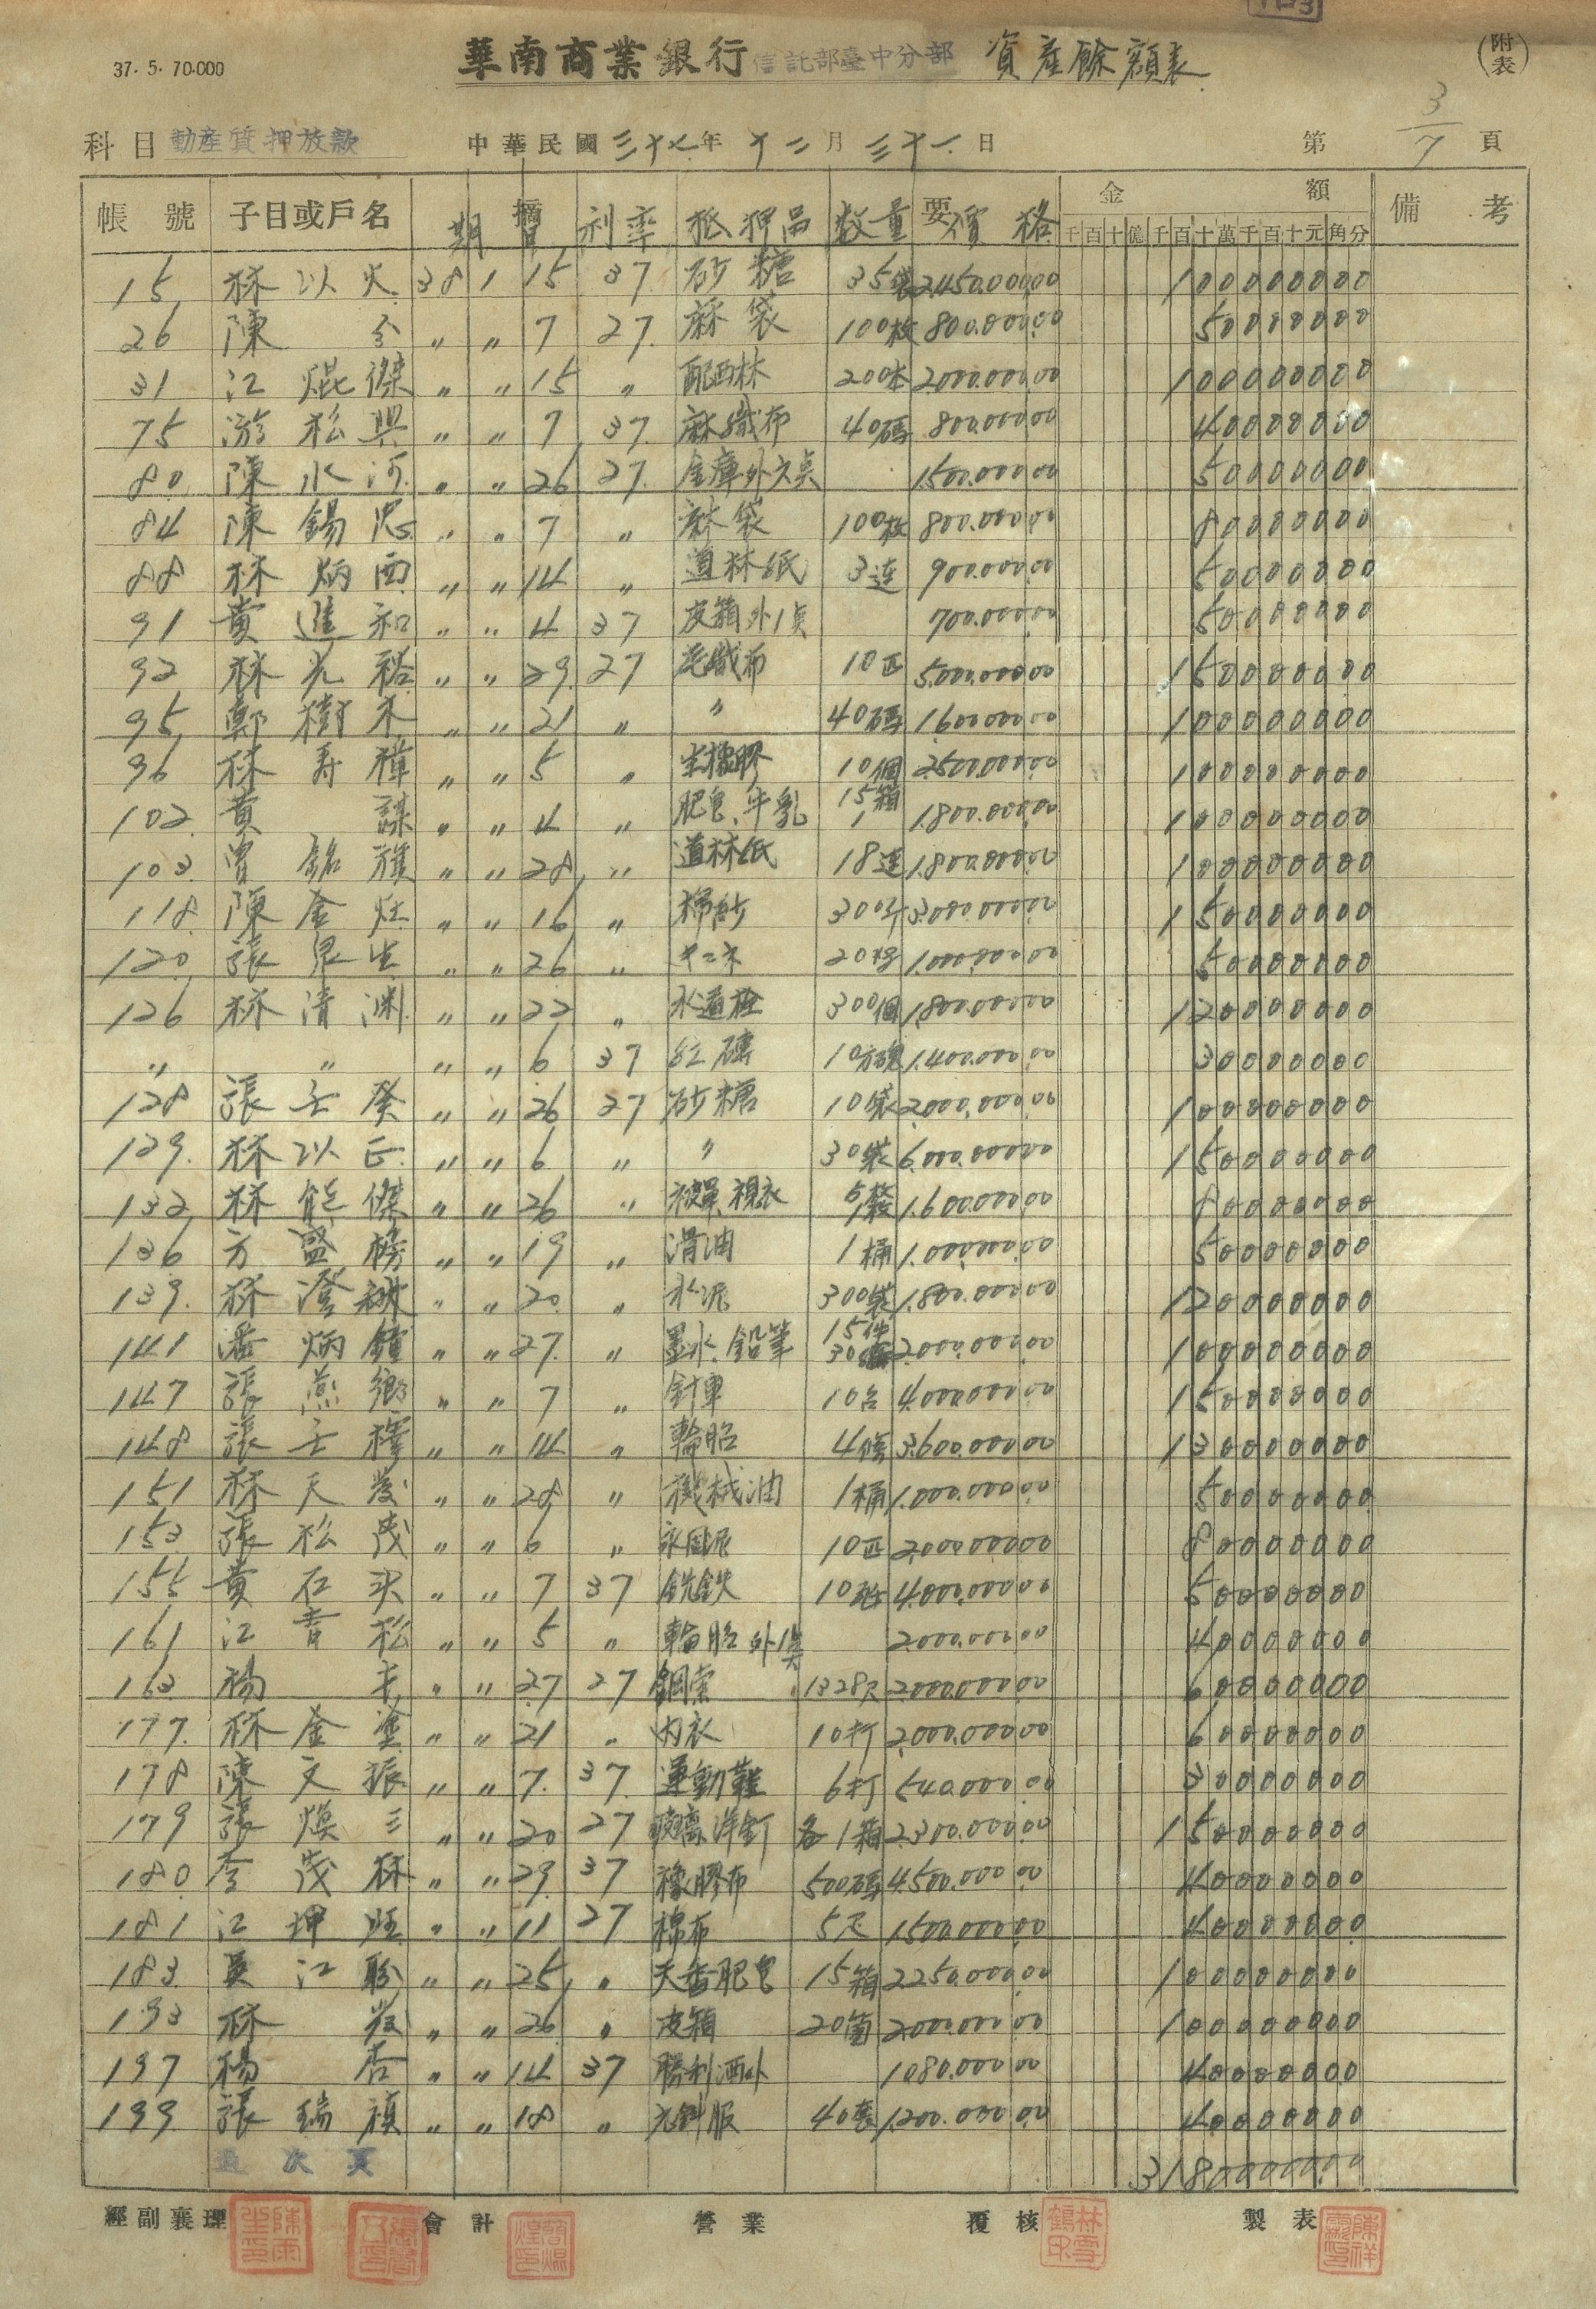 37. 5. 70.000
華南商業銀行 信託部臺中分部 資産餘額表
(附表)
科目 動産質押放款 中華民國三十七年十二月三十一日 第 3/7 頁
帳號 子目或戶名 摘要 金額 備考
期日 利率 抵押品 数量 價格 千百十億千百十萬千百十元角分
15 林以火 38 1 15 37 砂糖 35袋 2,450,000.00 1000000.00
26 陳 〃 〃 7 27 麻袋 100枚 800.000.00 500000.00
31 江焜傑 〃 〃 15 〃 200本 2.000.000.00 1000000.00
75 游松興 〃 〃 7 37 麻織布 40碼 800.000.00 400000.00
80 陳水河 〃 〃 26 27 金庫外六点 1.500.000.00 500000.00
84 陳錫忠 〃 〃 7 〃 麻袋 100枚 800.000.00 800000.00
88 林炳西 〃 〃 14 〃 道林紙 3連 900.000.00 500000.00
91 黄進和 〃 〃 4 37 皮箱外1点 700.000.00 500000.00
92 林光裕 〃 〃 29 27 毛織布 10匹 5.000.000.00 1500000.00
95 鄭樹木 〃 〃 21 〃 〃 40碼 1.600.000.00 1000000.00
96 林寿樟 〃 〃 5 〃 生橡膠 10個 2.500.000.00 1000000.00
102 黄謀 〃 〃 4 〃 肥皂、牛乳 15箱 1 1.800.000.00 1000000.00
103 曾銘旗 〃 〃 28 〃 道林紙 18連 1.800.000.00 1000000.00
118 陳金灶 〃 〃 16 〃 棉紗 300斤 3.000.000.00 1500000.00
120 張泉生 〃 〃 26 〃 20 1.000.000.00 500000.00
126 林清渊 〃 〃 22 〃 水道栓 300個 1.800.000.00 1200000.00
〃 〃 〃 〃 6 37 紅磚 10万塊 1.400.000.00 300000.00
128 張壬癸 〃 〃 26 27 砂糖 10袋 2.000.000.00 1000000.00
129 林以正 〃 〃 6 〃 〃 30袋 6.000.000.00 1500000.00
132 林能傑 〃 〃 26 〃 被單、 1.600.000.00 800000.00
136 方盛榜 〃 〃 19 〃 滑油 1桶 1.000.000.00 500000.00
139 林澄 〃 〃 20 〃 水泥 300袋 1.800.000.00 1200000.00
141 潘炳鐘 〃 〃 27 〃 墨水、鉛筆 15件 30 2.000.000.00 1000000.00
147 張燕鄉 〃 〃 7 〃 針車 10台 4.000.000.00 1500000.00
148 張壬 〃 〃 14 〃 輪胎 4條 3.600.000.00 1300000.00
151 林天發 〃 〃 28 〃 機械油 1桶 1.000.000.00 500000.00
153 張松茂 〃 〃 6 〃 永固尼 10匹 2.000.000.00 800000.00
155 黄石头 〃 〃 7 37 銑鉄 10 4.000.000.00 500000.00
161 江青松 〃 〃 5 〃 輪胎外1点 2.000.000.00 400000.00
163 楊 〃 〃 27 27 鋼索 1328尺 2.000.000.00 600000.00
177 林金塗 〃 〃 21 〃 内衣 10打 2.000.000.00 600000.00
178 陳文振 〃 〃 7 37 運動鞋 6打 540.000.00 300000.00
179 張煥三 〃 〃 20 27 玻璃、洋釘 各1箱 2.300.000.00 1500000.00
180 李茂林 〃 〃 29 37 橡膠布 500碼 4.500.000.00 400000.00
181 江坤旺 〃 〃 11 27 棉布 5疋 1.500.000.00 400000.00
183 吳江 〃 〃 25 〃 天香肥皂 15箱 2.250.000.00 1000000.00
193 林發 〃 〃 26 〃 皮箱 20箇 2.000.000.00 1000000.00
197 楊杏 〃 〃 14 37 勝利酒外 1.080.000.00 400000.00
199 張瑞禎 〃 〃 18 〃 40套 1.200.000.00 400000.00
過次頁 31800000.00
經副襄理 會計 營業 覆核 製表